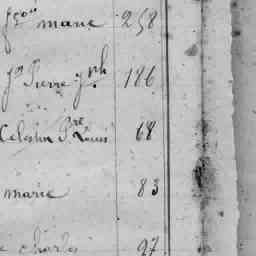 fçois marie 258
Jn Pierre Jph 186
Celestin Pre Louis 68
marie 83
e charles 97